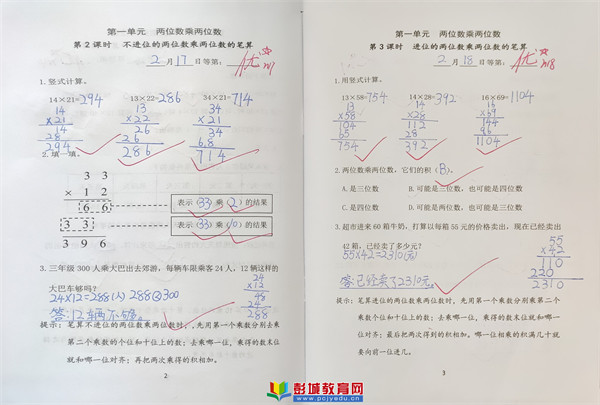 第一单元 两位数乘两位数
第2课时 不进位的两位数乘两位数的笔算
2月17日等第: 优
1.竖式计算。
14×21=294 13×22=286 34×21=714
14 13 34
×21 ×22 ×21
14 26 34
28 26 68
294 286 714
2.填一填。
3 3
× 1 2
6 6 表示(33)乘(2)的结果
3 3 表示(33)乘(10)的结果
3 9 6
3.三年级300人乘大巴出去郊游，每辆车限乘客24人，12辆这样的
大巴车够吗？
24×12=288(人) 288<300
答:12辆不够。
24
×12
48
24
288
提示：笔算不进位的两位数乘两位数时，先用第一个乘数分别去乘
第二个乘数的个位和十位上的数；去乘哪一位，乘得的数末位
就和哪一位对齐；再把两次乘得的积相加。
2
第一单元 两位数乘两位数
第3课时 进位的两位数乘两位数的笔算
2月18日等第: 优
1.用竖式计算。
13×58=754 14×28=392 16×69=1104
13 14 16
×58 ×28 ×69
104 112 144
65 28 96
754 392 1104
2.两位数乘两位数，它们的积(B)。
A.是三位数 B.可能是三位数，也可能是四位数
C.是四位数 D.可能是两位数，也可能是三位数
3.超市进来60箱牛奶，打算以每箱55元的价格卖出，现在已经卖出
42箱，已经卖了多少元？
55×42=2310(元)
答:已经卖了2310元。
55
×42
110
220
2310
提示：笔算进位的两位数乘两位数时，先用第一个乘数分别乘第二个
乘数个位和十位上的数；去乘哪一位，乘得的数末位就和哪一
位对齐；最后把两次得到的积相加。哪一位相乘的积满几十就
要向前一位进几。
3
彭城教育网
www.pcjyedu.cn